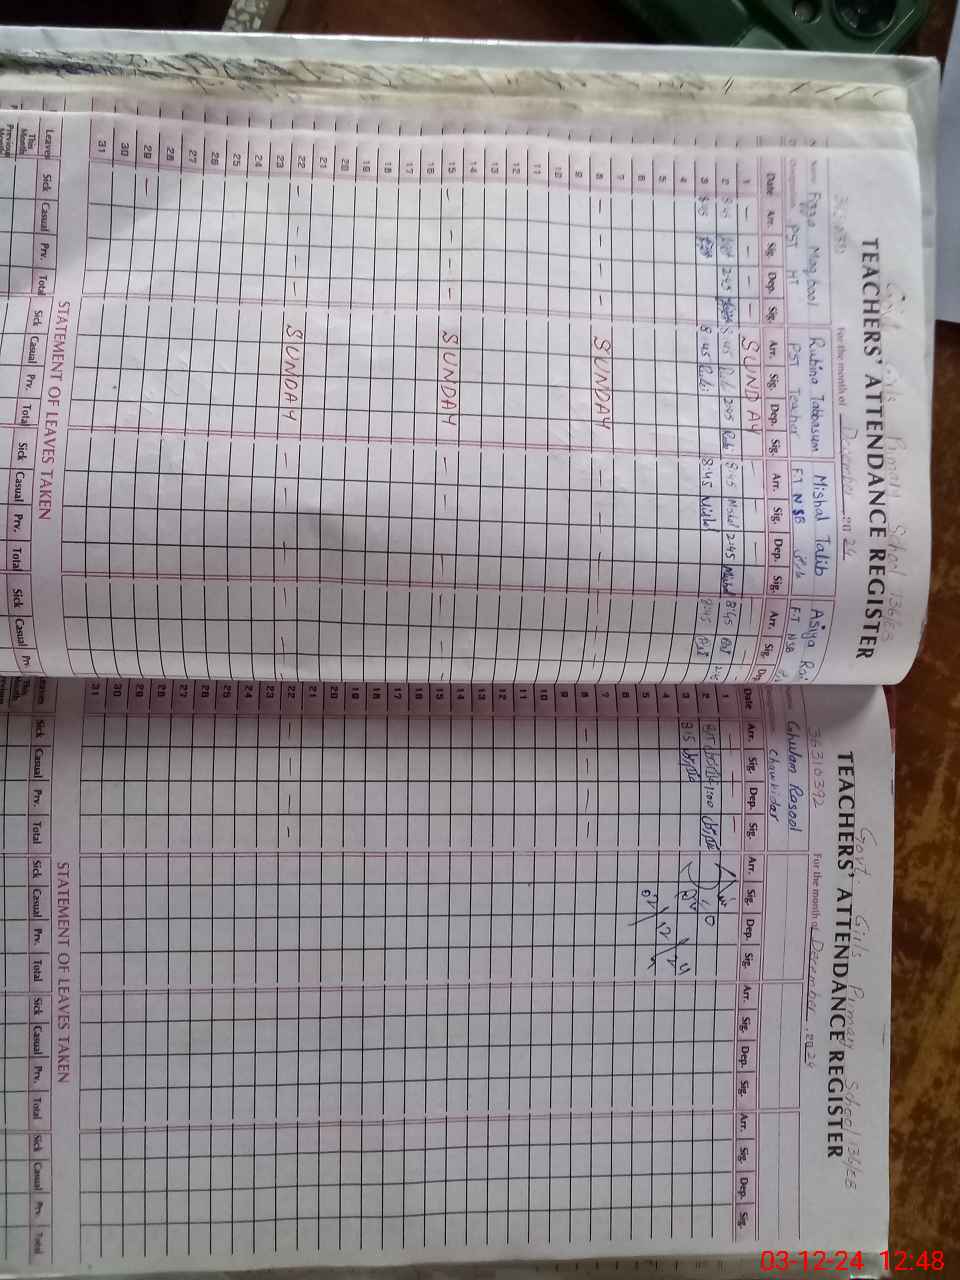 Govt. Girls Primary School 136/EB
TEACHERS' ATTENDANCE REGISTER
For the month of December 2024
Name Fizza Maqbool Rubina Tabbasum Mishal Talib Asiya
Designation PST HT PST Teacher FJ NSB FJ NSB
Date Arr. Sig. Dep. Sig. Arr. Sig. Dep. Sig. Arr. Sig. Dep. Sig. Arr. Sig.
1 — — — — SUNDAY — — — —
2 8:45 2:45 8:45 Rubi 2:45 Rubi 8:45 Mishal 2:45 Mishal 8:45
3 8:45 8:45 Rubi 8:45 Mishal 8:45
4
5
6
7
8 — — — — SUNDAY — — — —
9
10
11
12
13
14
15 — — — — SUNDAY — — — —
16
17
18
19
20
21
22 — — — — SUNDAY — — — —
23
24
25
26
27
28
29 —
30
31
STATEMENT OF LEAVES TAKEN
Leaves Sick Casual Prv. Total Sick Casual Prv. Total Sick Casual Prv. Total Sick Casual Prv.
This Month
Previous Month
Govt. Girls Primary School 136/EB
TEACHERS' ATTENDANCE REGISTER
36310392 For the month of December 2024
Ghulam Rasool
Chawkidar
Date Arr. Sig. Dep. Sig. Arr. Sig. Dep. Sig. Arr. Sig. Dep. Sig. Arr. Sig. Dep. Sig.
1 — — —
2 8:15 1:00
3 8:15
4
5
6
7
8 — — — —
9
10
11
12
13
14
15
16
17
18
19
20
21
22 — — — —
23
24
25
26
27
28
29
30
31
STATEMENT OF LEAVES TAKEN
Leaves Sick Casual Prv. Total Sick Casual Prv. Total Sick Casual Prv. Total Sick Casual Prv. Total
03-12-24 12:48